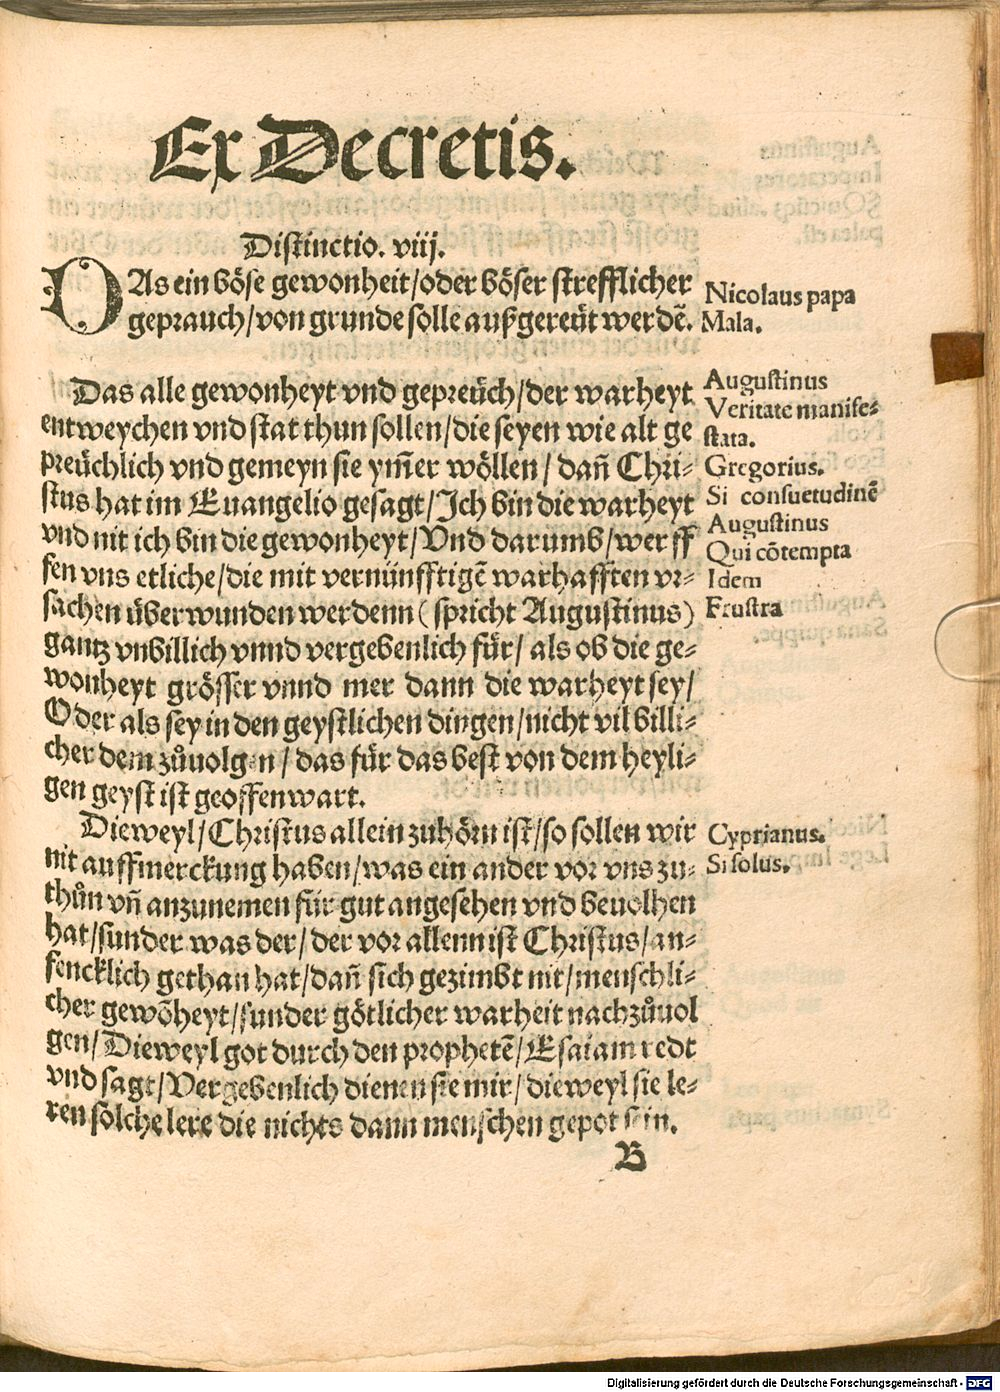 Ex Decretis.
Distinctio. viij.
DAs ein böse gewonheit/oder böser strefflicher
geprauch/von grunde solle außgereüt werdē.
Nicolaus papa
Mala.
Das alle gewonheyt vnd gepreüch/der warheyt
entweychen vnd stat thun sollen/die seyen wie alt ge
preüchlich vnd gemeyn sie ym̄er wöllen/dan̄ Chri-
stus hat im Euangelio gesagt/Ich bin die warheyt
vnd nit ich bin die gewonheyt/Vnd darumb/werff
fen vns etliche/die mit vernünfftigē warhafften vr-
sachen überwunden werdenn (spricht Augustinus)
gantz vnbillich vnnd vergebenlich für/als ob die ge-
wonheyt grösser vnnd mer dann die warheyt sey/
Oder als sey in den geystlichen dingen/nicht vil billi-
cher dem zůuolgen/das für das best von dem heyli-
gen geyst ist geoffenwart.
Augustinus
Veritate manife-
stata.
Gregorius.
Si consuetudinē
Augustinus
Qui cōtempta
Idem
Frustra
Dieweyl/Christus allein zuhörn ist/so sollen wir
nit auffmerckung haben/was ein ander vor vns zu-
thůn vn̄ anzunemen für gut angesehen vnd beuolhen
hat/sunder was der/der vor allenn ist Christus/an-
fencklich gethan hat/dan̄ sich gezimbt nit/menschli-
cher gewōheyt/sunder götlicher warheit nachzůuol
gen/Dieweyl got durch den prophetē/Esaiam redt
vnd sagt/Vergebenlich dienen sie mir/dieweyl sie le-
ren solche lere die nichts dann menschen gepot sein.
Cyprianus.
Si solus.
B
Digitalisierung gefördert durch die Deutsche Forschungsgemeinschaft - DFG